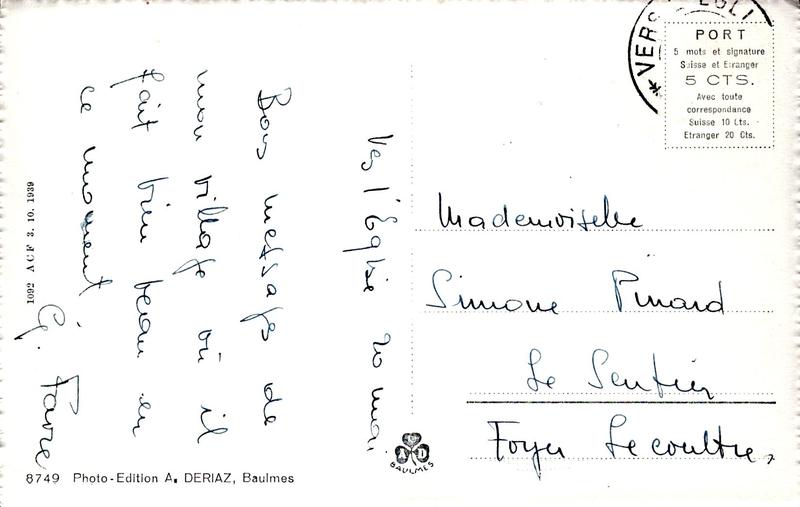 Vers l'Eglise 20 mai
Bons messages de
mon village où il
fait bien beau en
ce moment
G. Favre
1092 ACF 3. 10. 1939
8749 Photo-Edition A. DERIAZ, Baulmes
A C D
BAULMES
VERS EGLI
PORT
5 mots et signature
Suisse et Etranger
5 CTS.
Avec toute
correspondance
Suisse 10 Cts.
Etranger 20 Cts.
Mademoiselle
Simone Pinard
Le Sentier
Foyer Lecoultre,